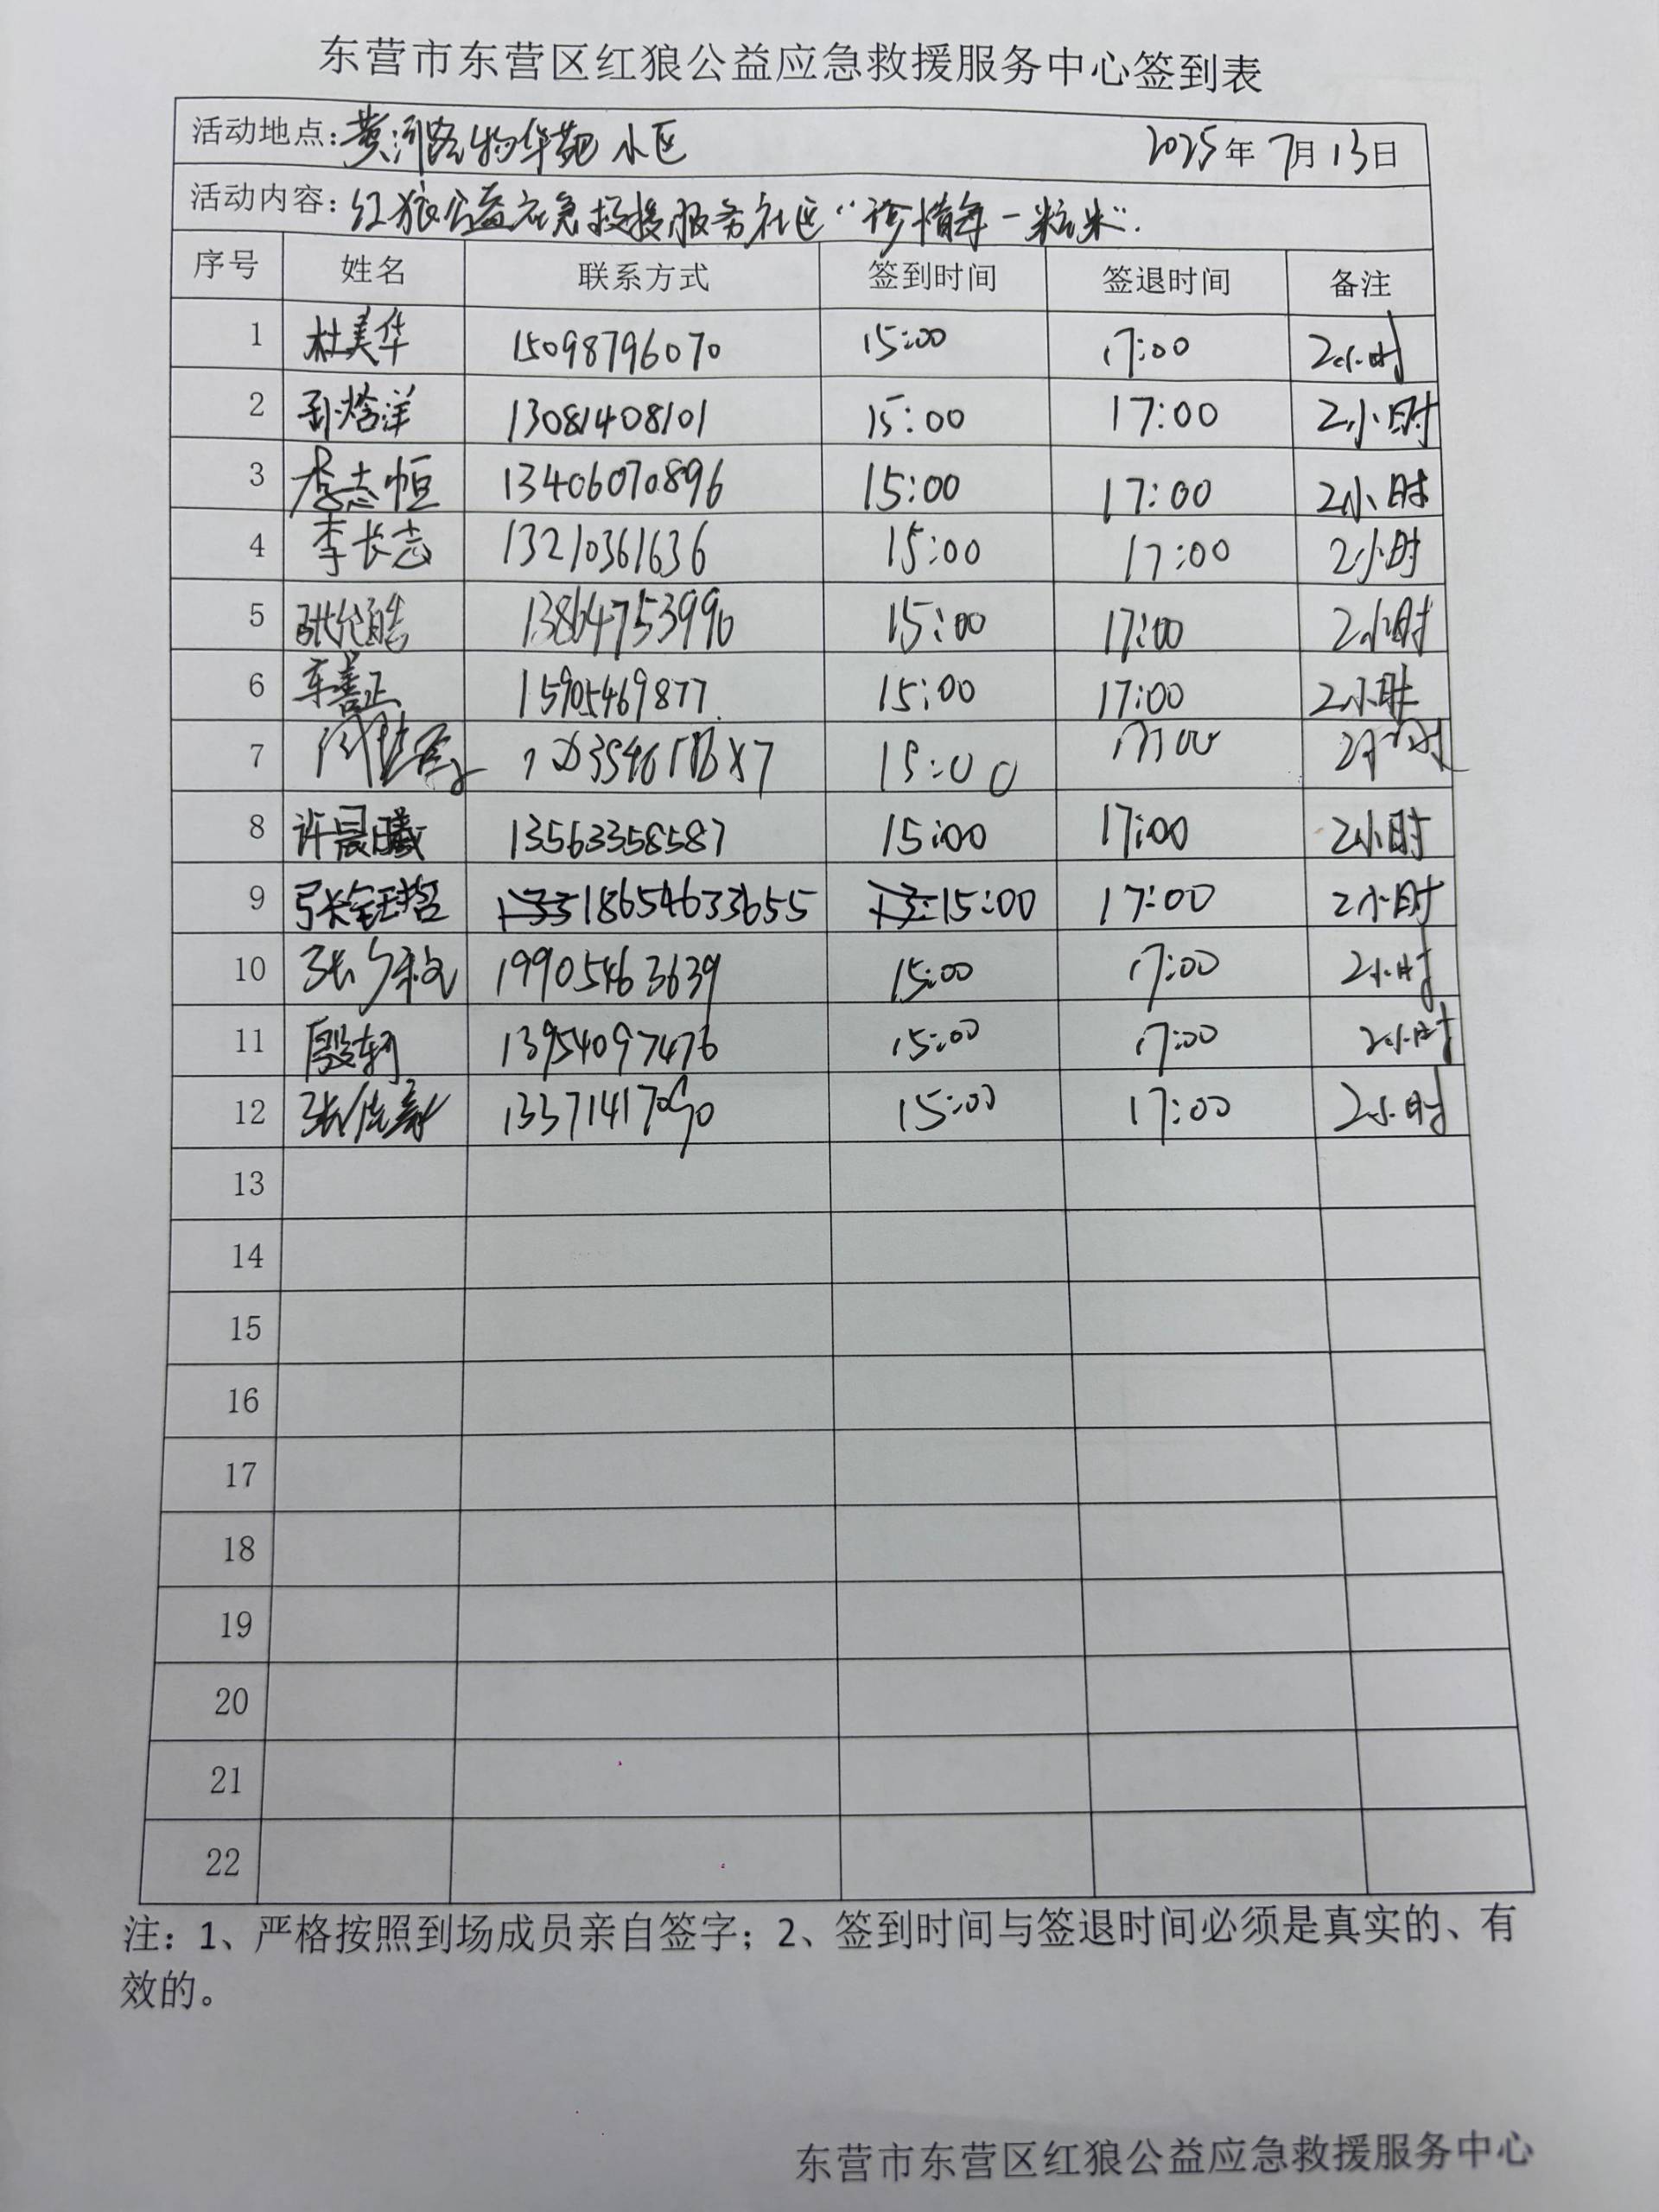 东营市东营区红狼公益应急救援服务中心签到表
活动地点：黄河路物华苑小区 2025年7月13日
活动内容：红狼公益应急救援服务社区“珍惜每一粒米”.
序号 姓名 联系方式 签到时间 签退时间 备注
1 杜美华 15098796070 15:00 17:00 2小时
2 洋 13081408101 15:00 17:00 2小时
3 志恒 13406070896 15:00 17:00 2小时
4 李长志 13210361636 15:00 17:00 2小时
5 张皓 13864753990 15:00 17:00 2小时
6 车善正 15905469877 15:00 17:00 2小时
7 15:00 17:00 2小时
8 许晨曦 13563358587 15:00 17:00 2小时
9 张钰 18654633655 15:00 17:00 2小时
10 张 19905463639 15:00 17:00 2小时
11 殷轲 13954097476 15:00 17:00 2小时
12 张 15:00 17:00 2小时
13
14
15
16
17
18
19
20
21
22
注：1、严格按照到场成员亲自签字；2、签到时间与签退时间必须是真实的、有
效的。
东营市东营区红狼公益应急救援服务中心